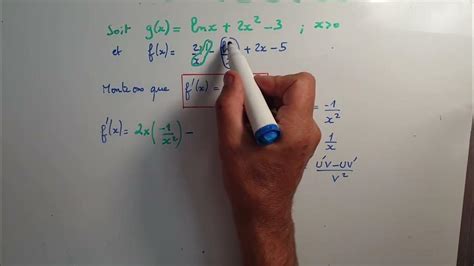 Soit g(x) = ln x + 2x² - 3 ; x>0
et f(x) = + 2x - 5
Montrons que f'(x) =
= -1/x²
1/x
f'(x) = 2x(-1/x²) -
u'v - uv'/v²